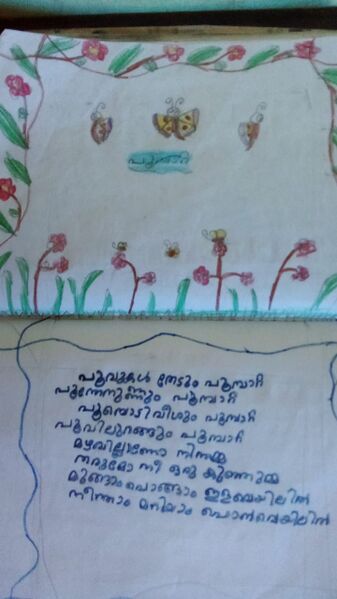 പൂമ്പാറ്റ
പൂവുകൾ തേടും പൂമ്പാറ്റ
പൂന്തേനുണ്ണും പൂമ്പാറ്റ
പൂമ്പൊടിവീശും പൂമ്പാറ്റ
പൂവിലുറങ്ങും പൂമ്പാറ്റ
മഴവില്ലാണോ നിന്നമ്മ
തരുമോ നീ ഒരു കുഞ്ഞുമ്മ
മുങ്ങാംപൊങ്ങാം ഇളവെയിലിൽ
നീന്താം മറിയാം പൊൻവെയിലിൽ